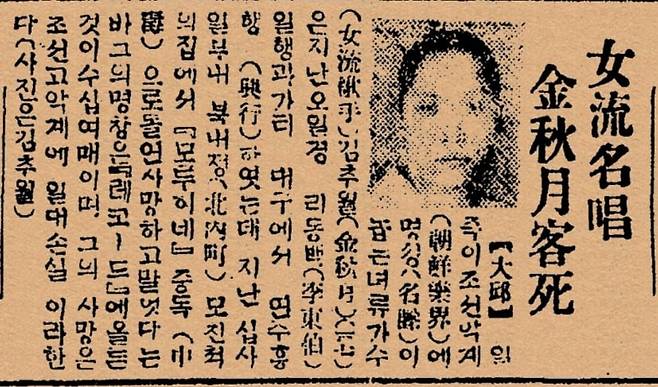 女流名唱
金秋月客死
【大邱】 일
즉이조선악계
(朝鮮樂界)에
명성(名聲)이
놉든녀류가수
(女流歌手)김추월(金秋月)
은지난오일경 리동백(李東伯)
일행과가티 대구에서 연주흥
행(興行)하엿는대 지난십사
일부내 북내정(北內町) 모친척
의집에서 『모투히네』중독(中
毒)으로돌연사망하고말엇다는
바그의명창은『레코ー드』에올른
것이수십여매이며 그의 사망은
조선고악계에 일대손실 이라한
다(사진은김추월)